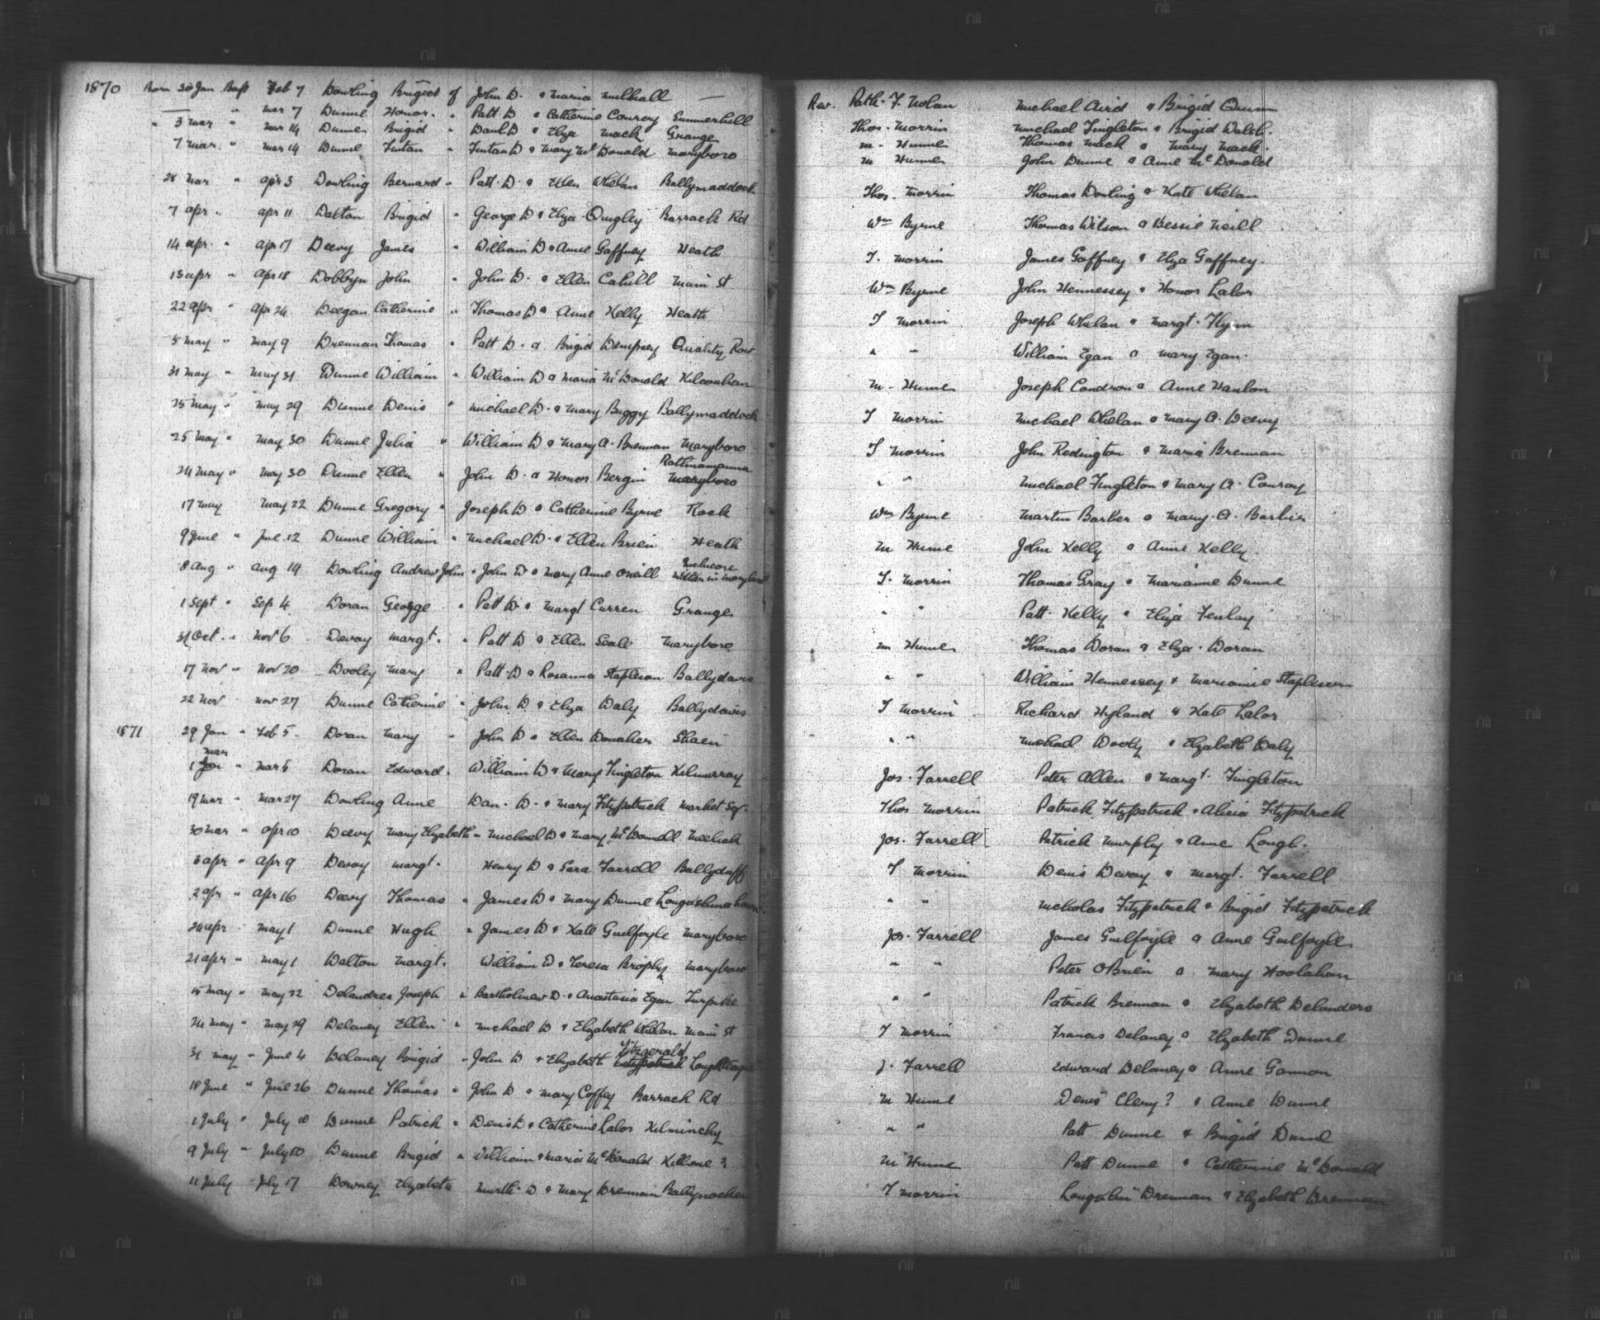 1870 Born 30 Jan Bapt Feb 7 Dowling Brigid of John D. & Maria Mulhall — Rev. Patk. F. Nolan Michael Aird & Brigid Quinn
— " Mar 7 Dunne Honor. " Patt D & Catherine Conroy Summerhill Thos. Morrin Michael Fingleton & Brigid Walsh.
" 3 Mar " Mar 14 Dunne Brigid " Danl D & Eliza Mack Grange M. Hume Thomas Mack & Mary Mack.
7 Mar. " Mar 14 Dunne Fintan " Fintan D & Mary McDonald Maryboro M Hume John Dunne & Anne McDonald
28 Mar " Apr 3 Dowling Bernard " Patt. D. & Ellen Whelan Ballymaddock Thos. Morrin Thomas Dowling & Kate Whelan
7 Apr. " Apr 11 Dalton Brigid " George D & Eliza Quigley Barrack Rd Wm Byrne Thomas Wilson & Bessie Neill
14 Apr. " Apr 17 Deevy James " William D & Anne Gaffney Heath T. Morrin James Gaffney & Eliza Gaffney.
15 Apr " Apr 18 Dobbyn John " John D. & Ellen Cahill Main St Wm Byrne John Hennessey & Honor Lalor
22 Apr " Apr 24 Deegan Catherine " Thomas D & Anne Kelly Heath T Morrin Joseph Whelan & Margt. Flynn
5 May " May 9 Drennan Thomas " Patt D. & Brigid Dempsey Quality Row " " William Egan & Mary Egan.
31 May " May 31 Dunne William " William D & Maria McDonald M. Hume Joseph Condron & Anne Hanlon
25 May " May 29 Dunne Denis " Michael D. & Mary Biggy Ballymaddock T Morrin Michael Whelan & Mary A. Deevy
25 May " May 30 Dunne Julia " William D & Mary A. Brennan Maryboro T Morrin John Redington & Maria Brennan
24 May " May 30 Dunne Ellen " John D. & Honor Bergin Rathnamanna Maryboro " " Michael Fingleton & Mary A. Conroy
17 May May 22 Dunne Gregory " Joseph D & Catherine Byrne Rock Wm Byrne Martin Barber & Mary A. Barber
9 June " June 12 Dunne William " Michael D. & Ellen Brien Heath M Hume John Kelly & Anne Kelly.
8 Aug " Aug 14 Dowling Andrew John " John D & Mary Anne Oneill T. Morrin Thomas Gray & Marianne Dunne
1 Sept " Sep 4 Doran George " Patt D & Margt Curren Grange " " Patt. Kelly & Eliza Fenlay
31 Oct. " Nov 6 Devoy Margt. " Patt D & Ellen Scali Maryboro M Hume Thomas Doran & Eliza. Doran
17 Nov " Nov 20 Dooley Mary " Patt D & Rosanna Stapleton Ballydavis " " William Hennessey & Marianne Stapleton
22 Nov Nov 27 Dunne Catherine " John D & Eliza Daly Ballydavis T Morrin Richard Hyland & Kate Lalor
1871 29 Jan " Feb 5. Doran Mary " John D & Ellen Donaher Shaen " " Michael Dooly & Elizabeth Daly
1 Mar " Mar 5 Doran Edward. William D & Mary Fingleton Kilmurray Jos. Farrell Peter Allen & Margt. Fingleton
19 Mar " Mar 27 Dowling Anne Dan. D. & Mary Fitzpatrick Market Sq. Thos Morrin Patrick Fitzpatrick & Alicia Fitzpatrick
30 Mar " Apr 10 Deevy Mary Elizabeth " Michael D & Mary McDonnell Meelick Jos. Farrell Patrick Murphy & Anne Lough.
3 Apr " Apr 9 Devoy Margt. Henry D & Sara Farrell Ballyduff T Morrin Denis Devoy & Margt. Farrell
2 Apr " Apr 16 Deevy Thomas " James D & Mary Dunne " " Nicholas Fitzpatrick & Brigid Fitzpatrick
24 Apr. May 1 Dunne Hugh " James D & Kate Guilfoyle Maryboro Jos. Farrell James Guilfoyle & Anne Guilfoyle
21 Apr " May 1 Dalton Margt. William D & Teresa Brophy Maryboro " " Peter O'Brien & Mary Hoolahan
15 May " May 22 Delandres Joseph " Bartholmew D. & Anastasia Egan Turnpike " " Patrick Brennan & Elizabeth Delanders
24 May " May 29 Delaney Ellen " Michael D & Elizabeth Whelan Main St T Morrin Francis Delaney & Elizabeth Dunne
31 May " June 4 Delaney Brigid " John D & Elizabeth Fitzgerald Fitzpatrick J. Farrell Edward Delaney & Anne Gannon
18 June " June 26 Dunne Thomas " John D & Mary Coffey Barrack Rd M Hume Denis Cleny? & Anne Dunne
1 July " July Dunne Patrick " Denis D & Catherine Lalor Kilminchy " " Patt Dunne & Brigid Dunne
9 July " July 10 Dunne Brigid " William & Maria McDonald Killone ? M Hume Patt Dunne & Catherine McDonald
11 July " July 17 Downey Elizabeth Murth. D & Mary Brennan T Morrin Loughlin Brennan & Elizabeth Brennan